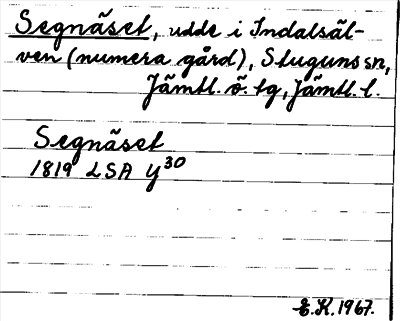 Segnäset, udde i Indalsäl-
ven (numera gård), Stuguns sn,
Jämtl. ö. tg, Jämtl. l.
Segnäset
1819 LSA Y30
E.K. 1967.